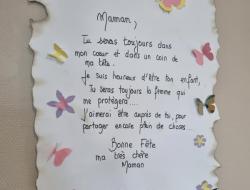 Maman,
Tu seras toujours dans
mon cœur et dans un coin de
ma tête.
Je suis heureux d'être ton enfant,
Tu seras toujours la femme qui
me protègera....
J'aimerai être auprès de toi, pour
partager encore plein de choses...
Bonne Fête
ma très chère
Maman